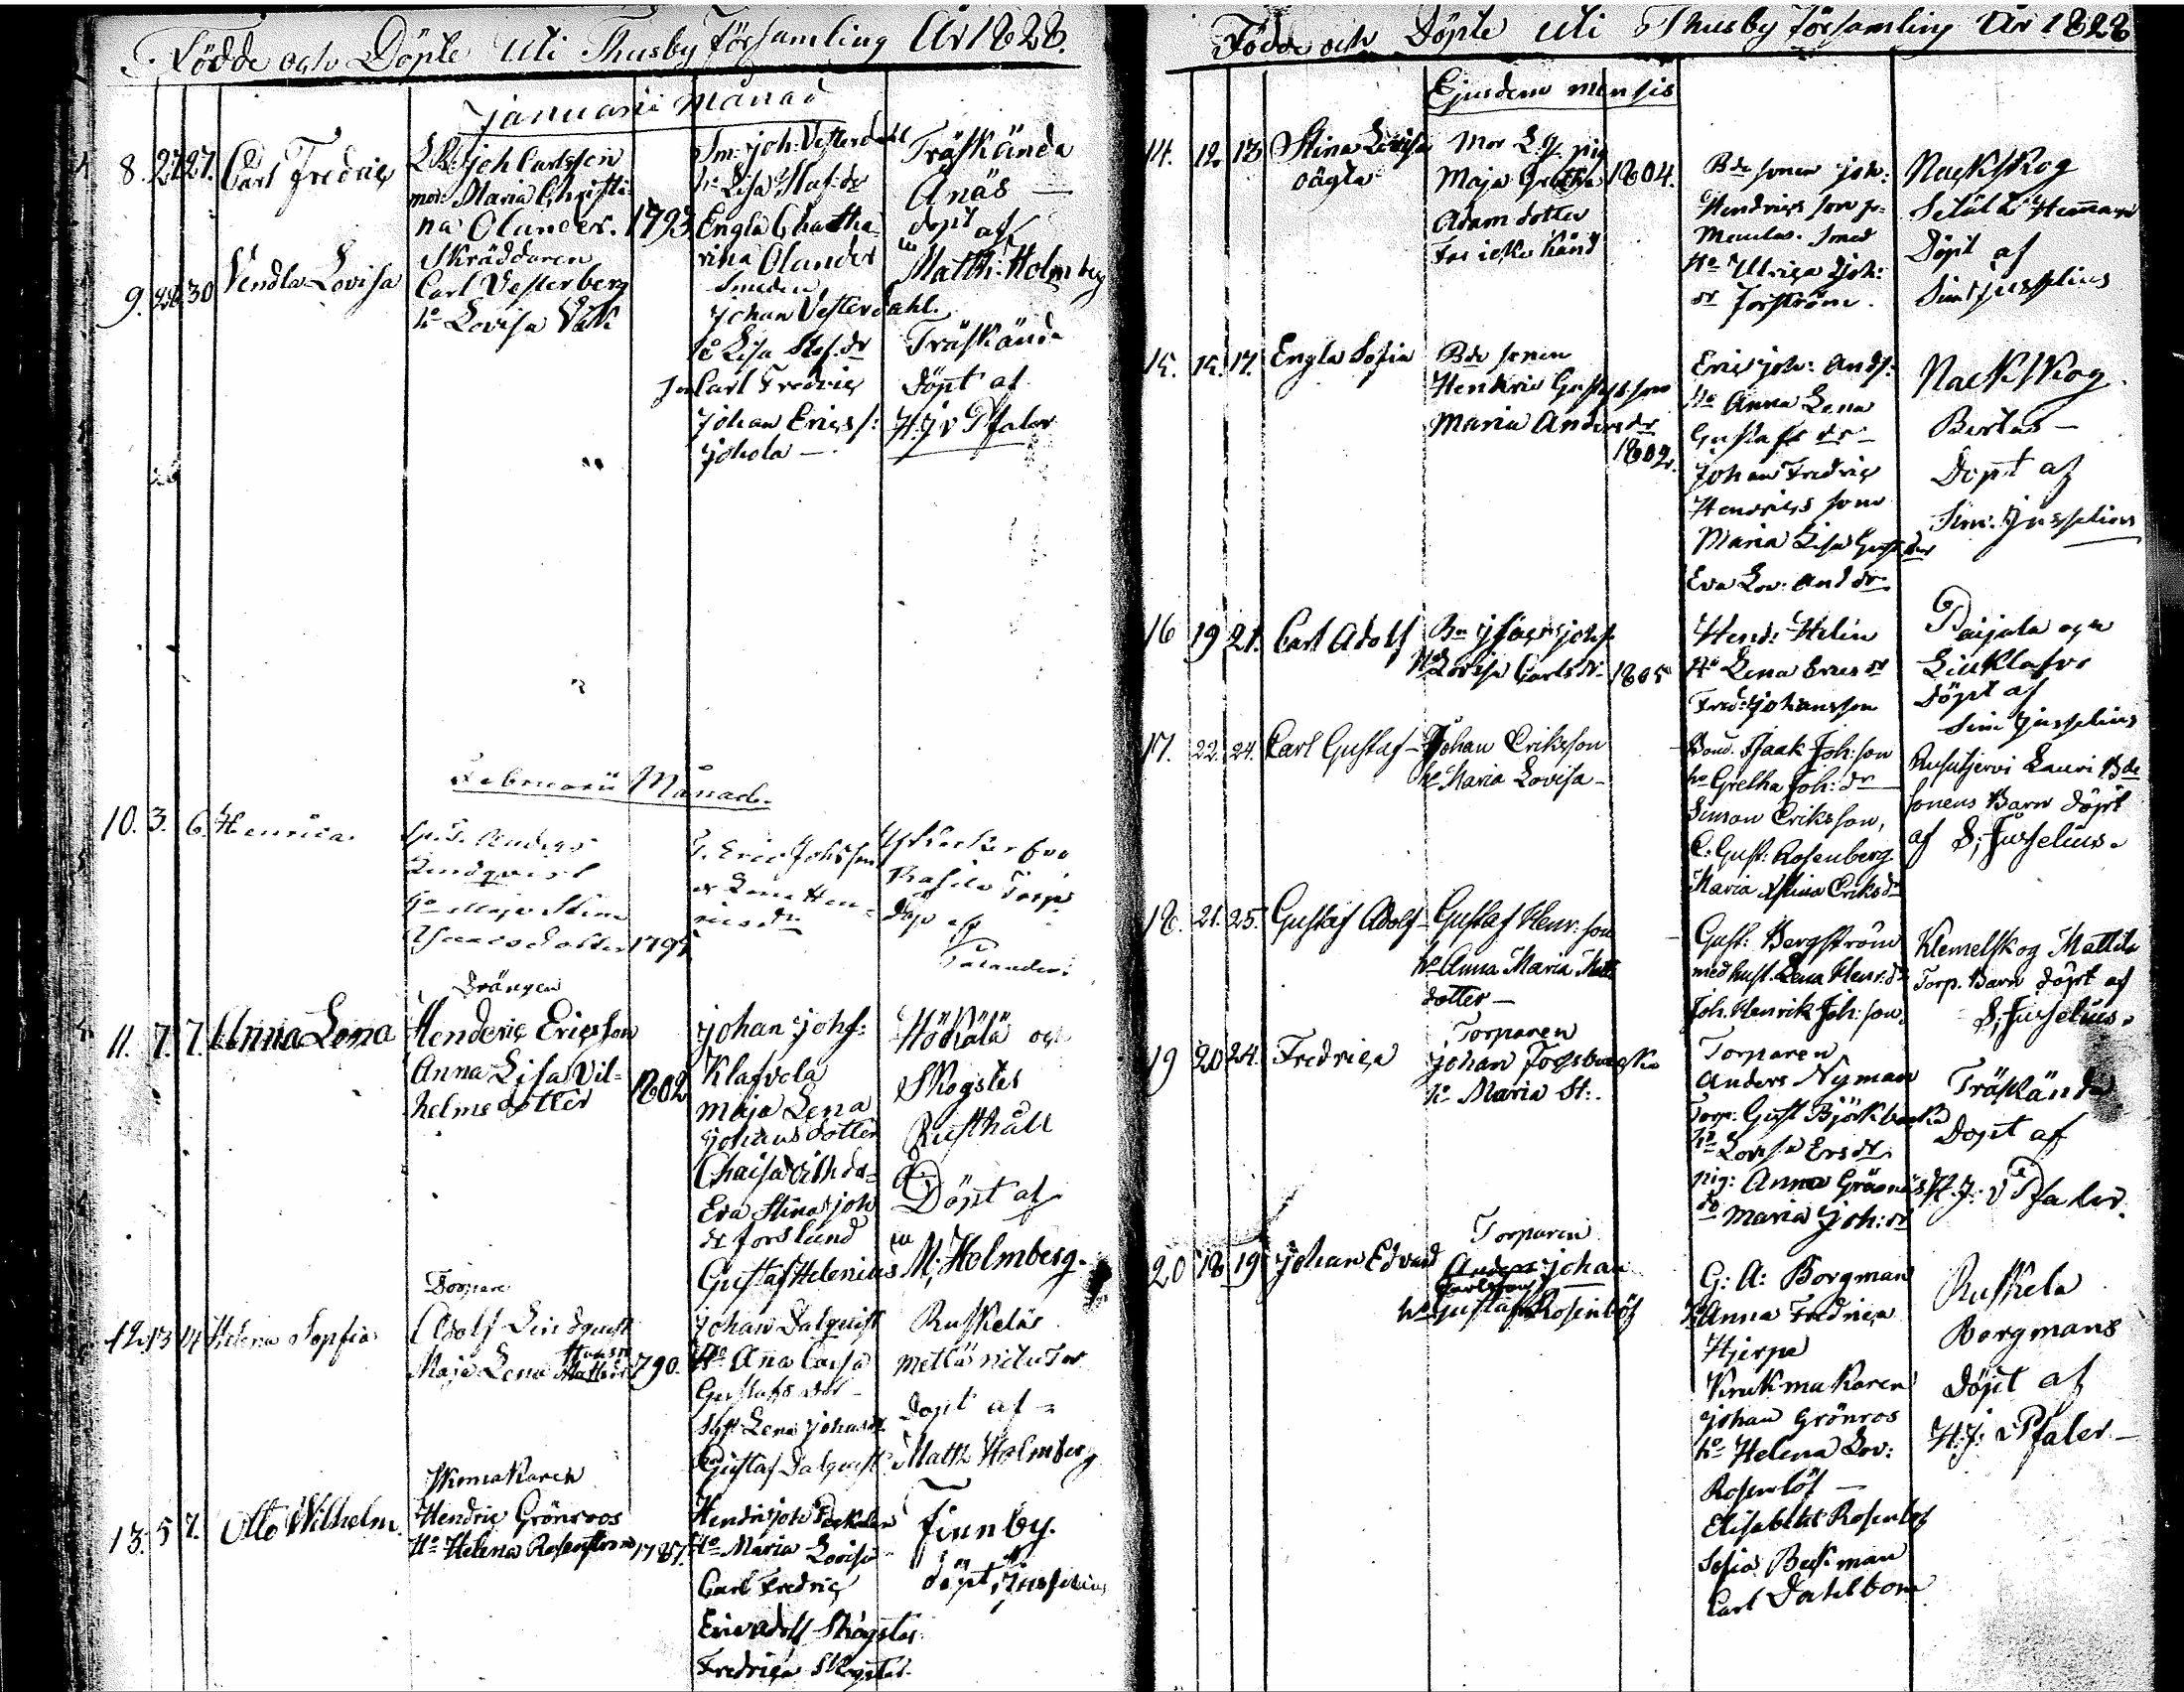 Födde och Döpte Uti Thusby Församling År 1828.
Januarii Månad
8. 27. 27. Carl Fredric
Joh Carlsson
mor: Maria Christi
na Olander. 1793
Sm: Joh: Vesterdahl
hu Lisa Staf: dr
Engla Chatha
rina Olander
Träskända
Anäs —
döpt af
Matth: Holmberg
9. 28 30 Vendla Lovisa
Skräddaren
Carl Vesterberg
hu Lovisa
Smeden
Johan Vesterdahl.
hu Lisa Staf. dr
Carl Fredric
Johan Erics s:
Johola —
Träskända
Döpt af
H. J v Pfaler
Februarii Månad.
10. 3. 6. Henrica
Anders
Lindqvist
hu Maja Stina
Isaacs dotter 1797
T. Eric Johsson
Lena Hen-
rics dr
Torp
döp af
Tulander:
11. 7. 7. Anna Lena
Drängen
Henderic Ericsson
Anna Lisa Vil-
helms dotter 1802
Johan Johs:
Klafvola
Maja Lena
Johans dotter
Chaisa Vilh dr
Eva Stina Joh
dr Forslund
Gustaf Helenius
Hökälä och
Skogster
Rusthåll
Döpt af
M: Holmberg.
12. 13 14 Helena Sophia
Torpare
Adolf Lindquist
Hu
Maja Lena Matts dr 1790.
Johan Dalquist
Hu Ana Caisa
Gustafs dor —
Lena Johans dr
Gustaf Dalquist
Ruskeläs
döpt af
Matth Holmberg
13. 5 7. Otto Wilhelm.
Skomakaren
Hendric Grönroos
Hu Helena Rosenström 1787.
Hendric Joh
Hu Maria Lovisa
Carl Fredric
Eric Adolf Skogster
Fredrica Skogster.
Finnby.
döpt Jusselius
Födde och Döpte Uti Thusby församling År 1828
Ejusdem mensis
14. 12. 13 Stina Lovisa
oägta
Mor L. g. pig
Maja Gretha 1804.
Adam dotter
Far icke känd
Bde sonen Joh:
Hendrics son
Hu Ulrica Joh:
dr Forström.
Nackskog
Seutula Hemman
Döpt af
Sim Jusselius
15. 15. 17. Engla Sofia
Bde sonen
Hendric Gustafsson
Maria Anders dr
1802.
Eric Joh: Ands:
Hu Anna Lena
Gustafs dr —
Johan Fredric
Henrics son
Maria Lisa Gust dr
Eva Lov: And dr
Nackskog.
Bertas —
Döpt af
Sim: Jusselius
16 19 21. Carl Adolf
Bn Isac Johs
Hu Lovisa Carls dr 1805
Hend: Helin
Hu Lena Erics dr
Fred: Johansson
Paijala och
Liuklafve
döpt af
Sim Jusselius
17. 22. 24. Carl Gustaf —
Johan Eriksson
hu Maria Lovisa —
Bond. Isaak Joh: son
hu Gretha Joh: dr
Simon Eriksson,
C: Gust: Rosenberg
Maria Stina Eriks dr
Rusutjervi Lauri Bde
sonens Barn döpt
af S; Jusselius.
18. 21. 25. Gustaf Adolf —
Gustaf Henr: son
hu Anna Maria Matts
dotter —
Gust: Bergström
med hust. Lena Henr: dr
Joh. Henrik Joh: son.
Klemetskog Mattila
Torp. Barn döpt af
S; Juselius.
19 20 24. Fredrica
Torparen
Johan Forsbacka
hu Maria St:.
Torparen
Anders Nyman
Torp: Gust Björkbacka
hu Lovisa Ers dr
pig: Anna Grönroos
do Maria Joh: dr
Träskända
Döpt af
H. J: v Pfaler.
20 18 19 Johan Edvard
Torparen
Anders Johan
Carlsson
hu Gustafva Rosenlöf
G: A: Borgman
hu Anna Fredrica
Hjerpe
Krukmakaren
Johan Grönros
hu Helena Lov:
Rosenlöf —
Elisabeth Rosenlöf
Sofia Beckman
Carl Dahlbom
Ruskela
Borgmans
döpt af
H. J: v Pfaler —